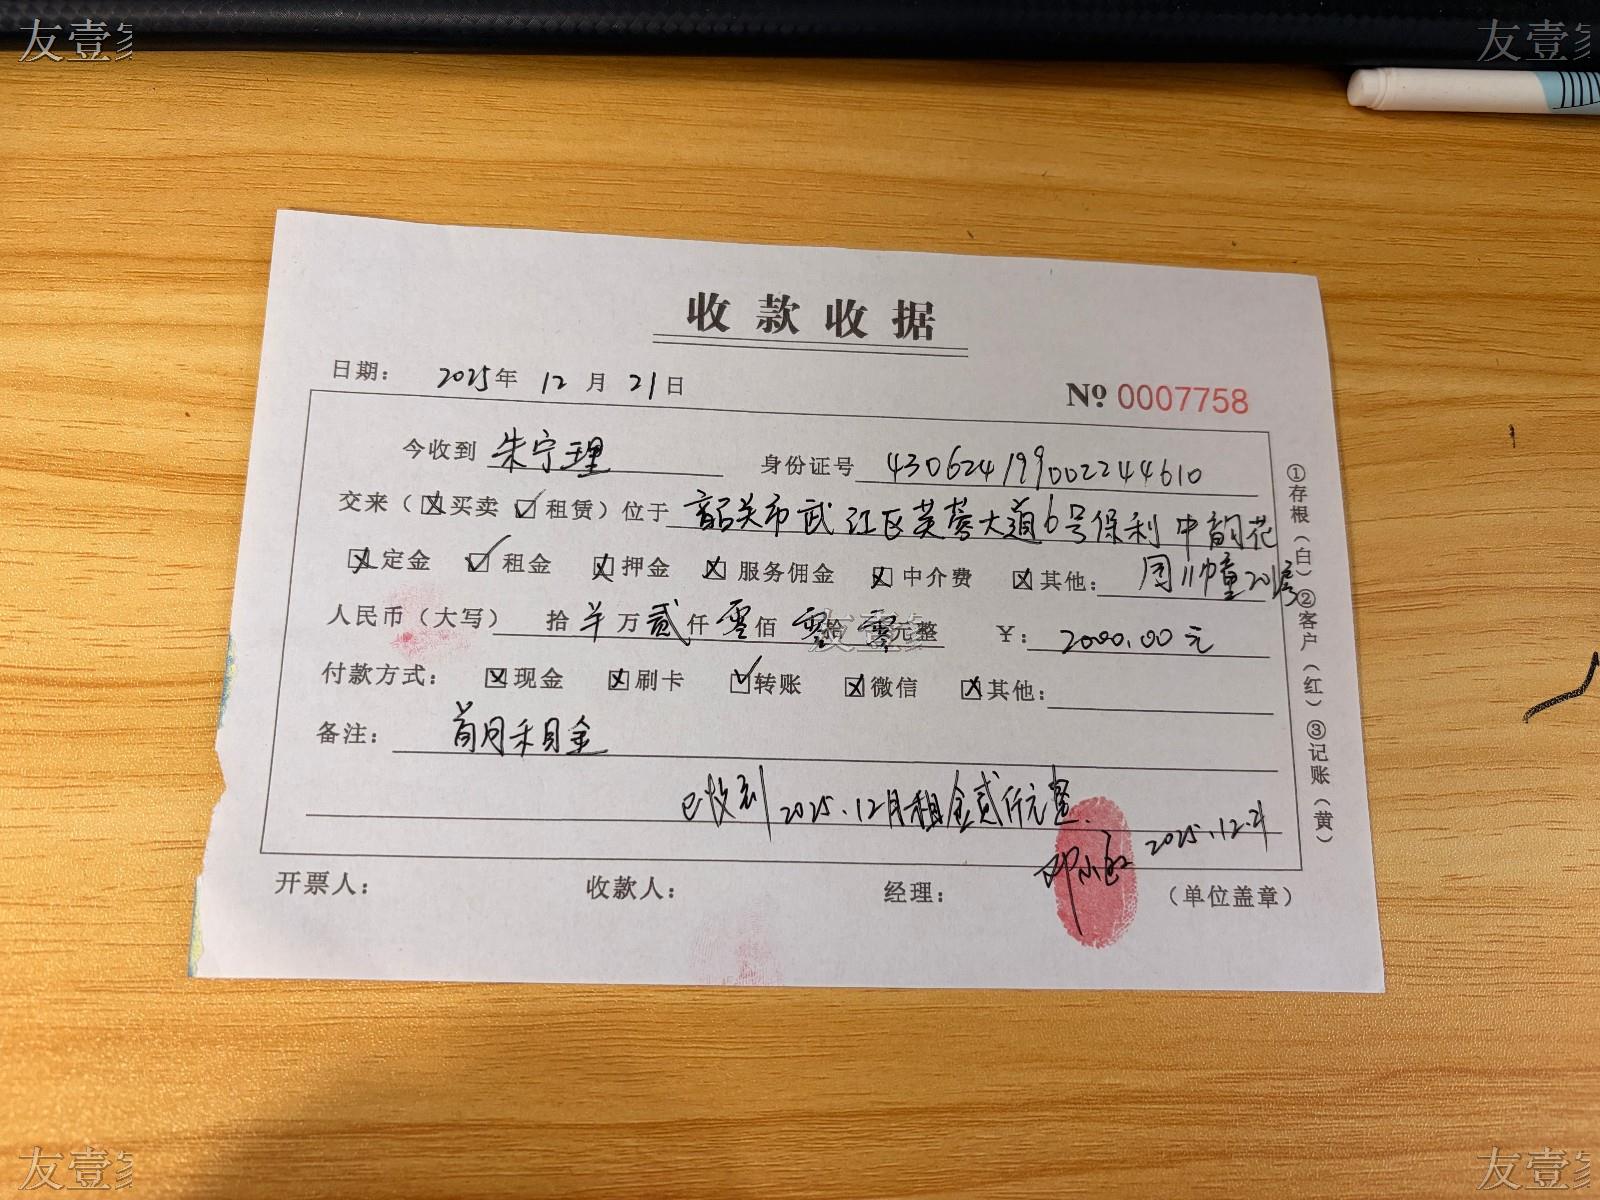 友壹
友壹
收款收据
日期： 2025年 12月 21日
№ 0007758
今收到 朱宁理 身份证号 430624199002244610
交来（☒买卖 ☑租赁）位于 韶关市武江区芙蓉大道6号保利中韵花
☒定金 ☑租金 ☒押金 ☒服务佣金 ☒中介费 ☒其他：园11幢201房
人民币（大写） 拾 万贰仟零佰零拾零元整 ￥：2000.00元
友壹
付款方式： ☒现金 ☒刷卡 ☑转账 ☒微信 ☒其他：
备注： 首月租金
已收到2025.12月租金贰仟元整.
2025.12.21
开票人： 收款人： 经理： （单位盖章）
①存根（白）②客户（红）③记账（黄）
友壹
友壹